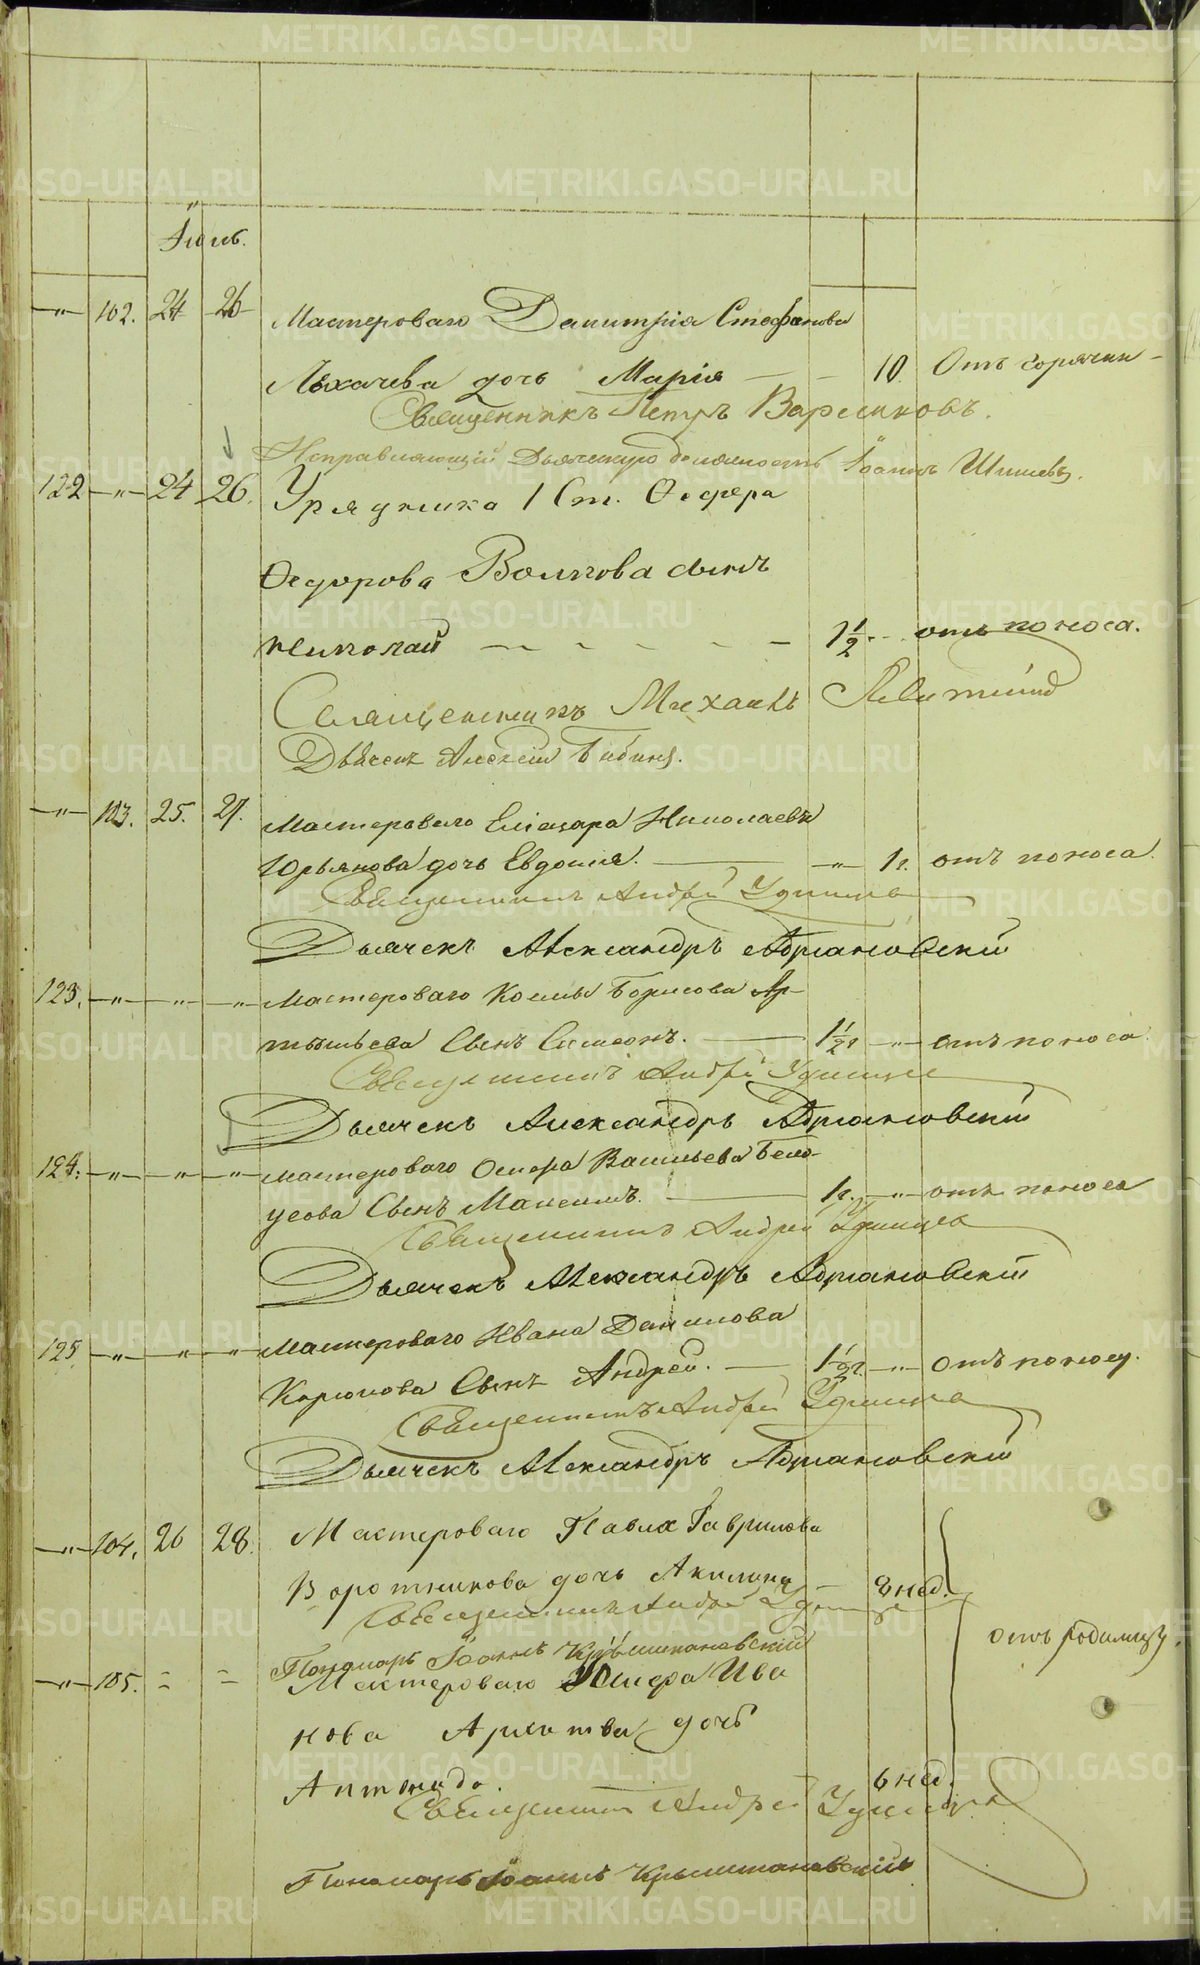 Іюль.
—"— 102. 24 26 Мастероваго Димитрія Стефанова
Лыхачева дочь Марія — — 10. Отъ горячки —
Священникъ Петръ
Исправляющій Дьяческую должность Іоаннъ Шишевъ.
122 —"— 24 26. Урядника 1 Ст. Ѳедора
Ѳедорова Волкова сынъ
Николай — — — — — 1½ — отъ поноса.
Священникъ Михаилъ Левитскій
Дьячекъ Алексій Бибинъ.
—"— 103. 25. 27. Мастероваго Елиазара Николаева
Юрьянова дочь Евдокія. — —"— 1 г. отъ поноса.
Священникъ Андрей Удинцевъ
Дьячекъ Александръ Адріановскій
123. —"— —"— —"— Мастероваго Космы Борисова Ар-
тышева Сынъ Симеонъ. — 1½ г —"— отъ поноса.
Священникъ Андрей Удинцевъ
Дьячекъ Александръ Адріановскій
124. —"— —"— —"— мастероваго Осипа Васильева Бело-
усова Сынъ Максимъ. — 1 г. —"— отъ поноса
Священникъ Андрей Удинцевъ
Дьячекъ Александръ Адріановскій
125 —"— —"— —"— мастероваго Ивана Данилова
Корюкова Сынъ Андрей. — 1½ г. —"— отъ поносу.
Священникъ Андрей Удинцевъ
Дьячекъ Александръ Адріановскій
—"— 104. 26 28. Мастероваго Павла Гаврилова
Воротникова дочь Акилина — 8 нед.
Священникъ Андрей Удинцевъ
отъ родимцу.
Пономарь Іоаннъ Крыжановскій
—"— 105. = = Мастероваго Ива
нова дочь
6 нед.
Священникъ Андрей Удинцевъ
Пономарь Іоаннъ Крыжановскій
METRIKI.GASO-URAL.RU